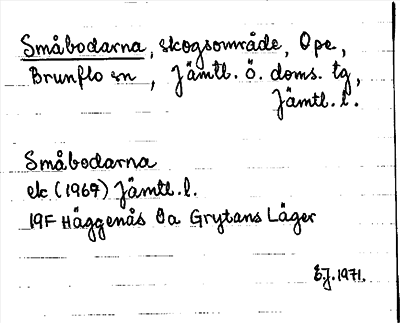 Småbodarna, skogsområde, Ope,
Brunflo sn, Jämtl. ö. doms. tg,
Jämtl. l.
Småbodarna
ek (1969) Jämtl. l.
19F Häggenås Öa Grytans Läger
E.J. 1971.